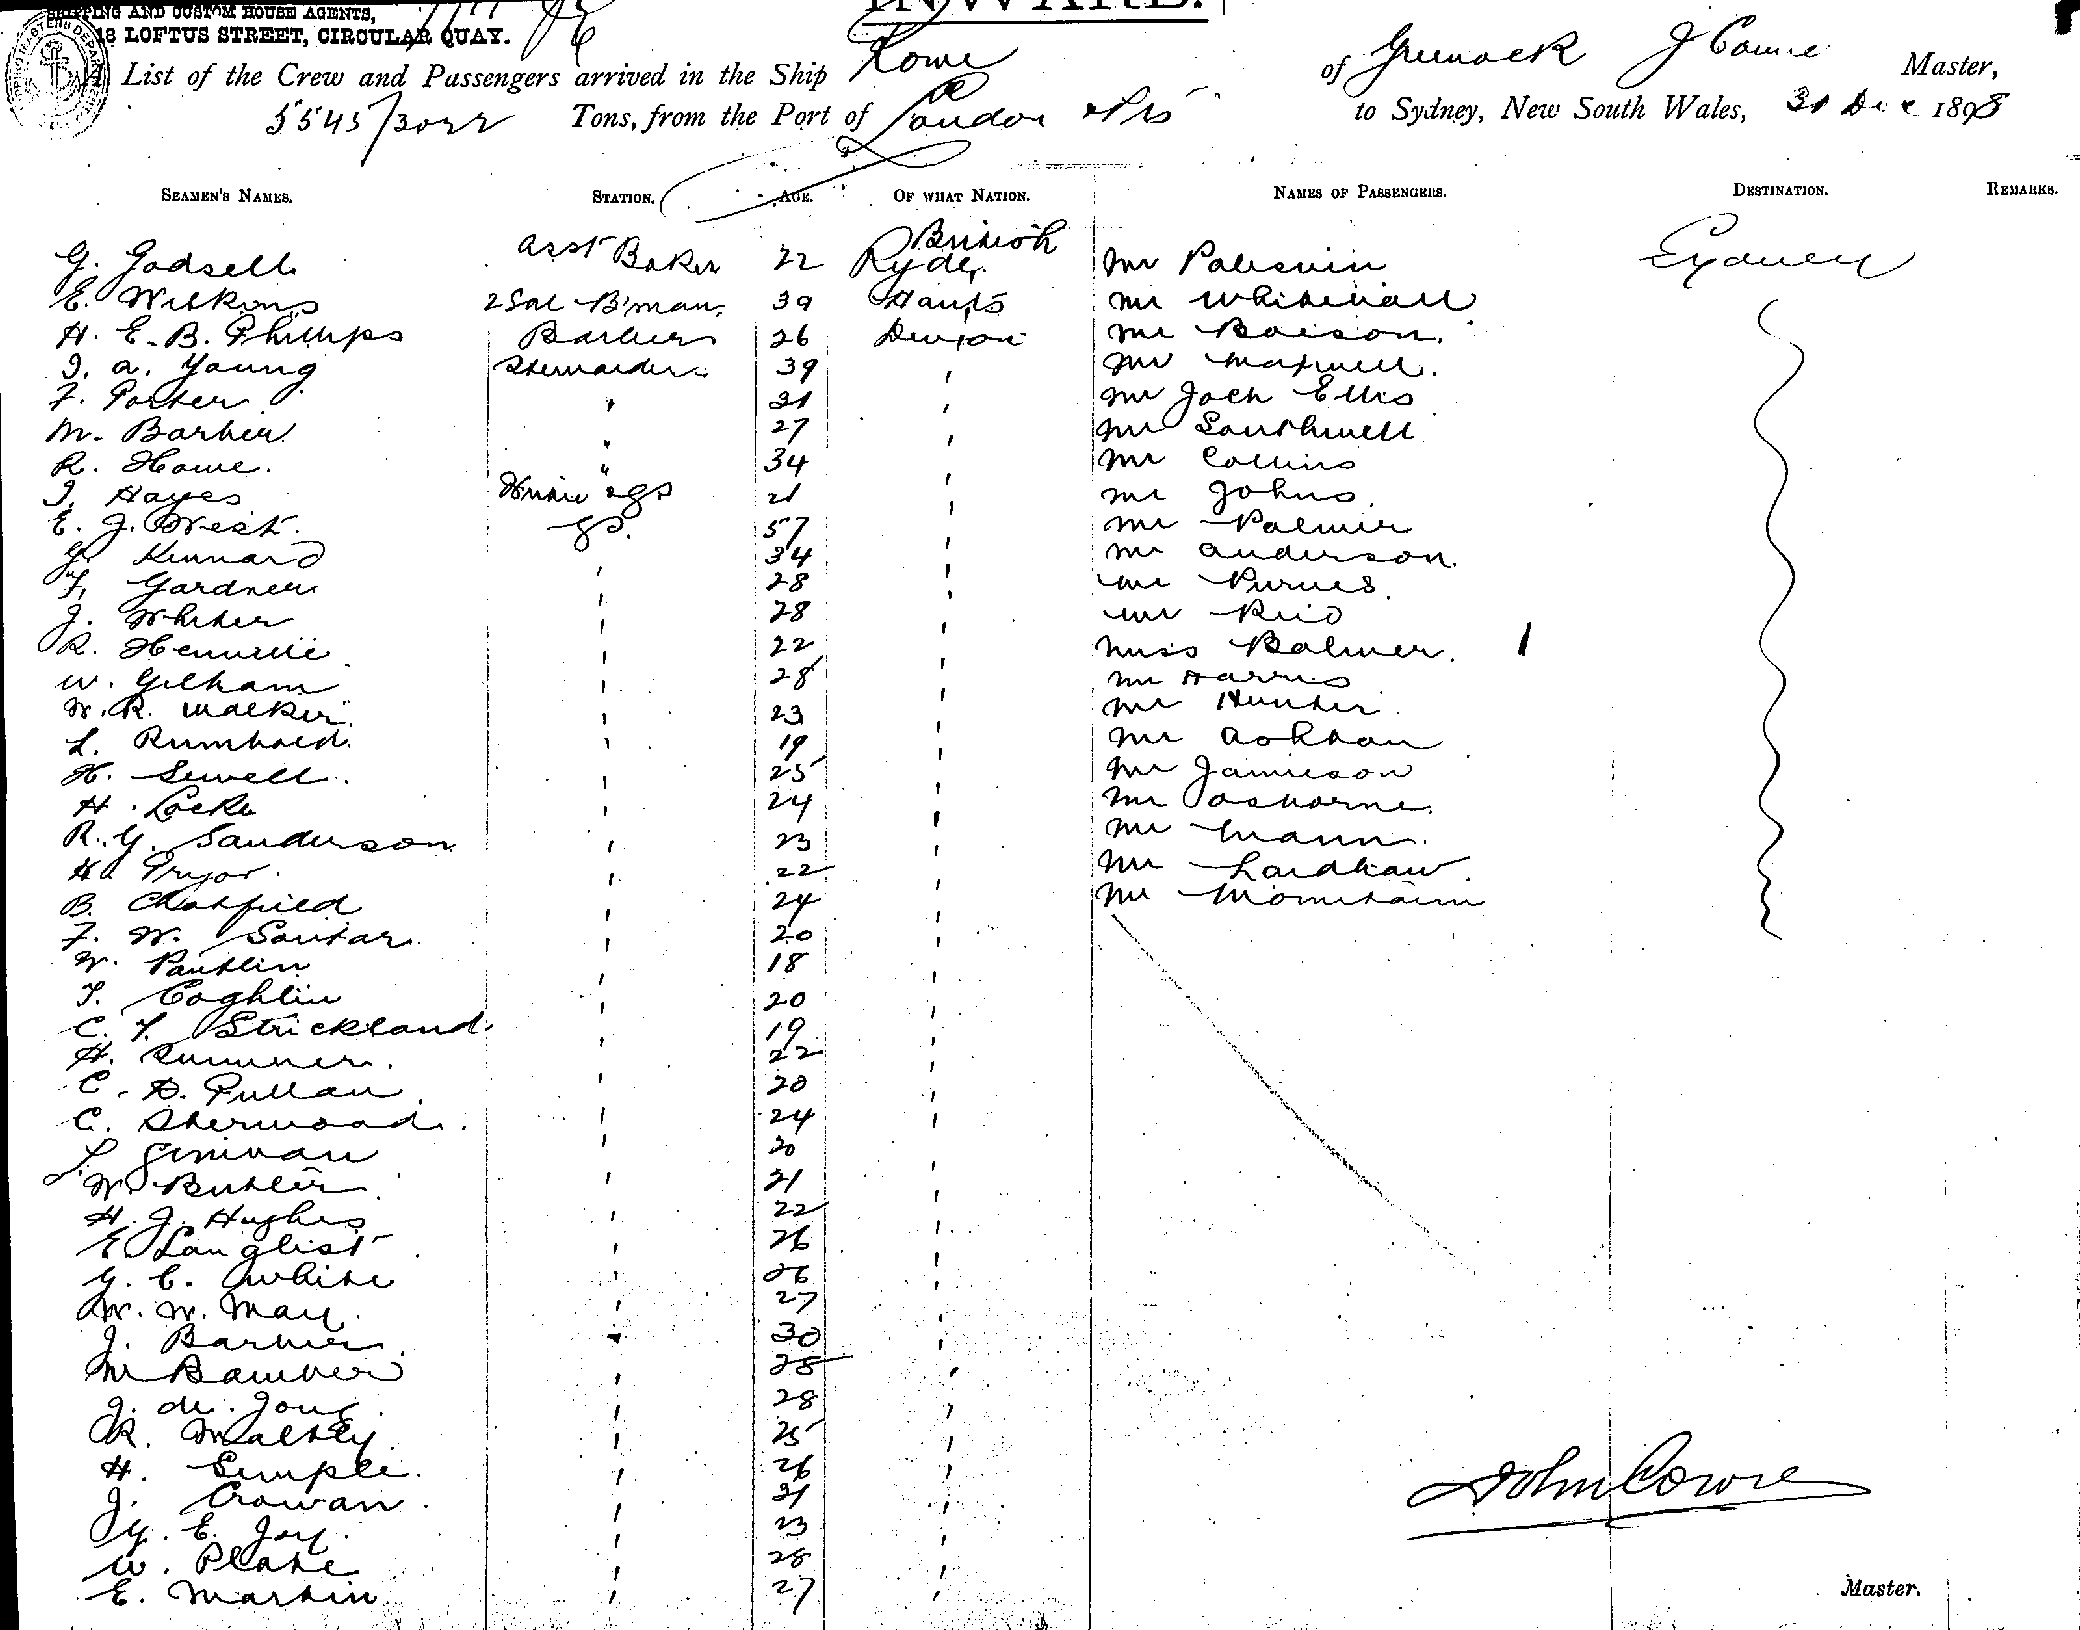 SHIPPING AND CUSTOM HOUSE AGENTS,
13 LOFTUS STREET, CIRCULAR QUAY.
INWARD.
A List of the Crew and Passengers arrived in the Ship Rome of Greenock J Cowie Master,
5545/3022 Tons, from the Port of London to Sydney, New South Wales, 31 Dec 1898
SEAMEN'S NAMES. STATION. AGE. OF WHAT NATION. NAMES OF PASSENGERS. DESTINATION. REMARKS.
British
G. Godsell Asst Baker 22 Ryde Mr Sydney
E. Wilkins 2 Sal B'man 39 Hants Mr Whitewall
H. E. B. Phillips Barber 26 Devon Mr Boison
J. A. Young Stewardess 39 " Mr Maxwell
F. Porter " 31 " Mr Joch Ellis
M. Barber " 27 " Mr Southwell
R. Howe " 34 " Mr Collins
J. Hayes 21 " Mr Johns
E. J. West GS. 57 " Mr Palmer
J. Kennard 34 " Mr Anderson
F. Gardner " 28 " Mr Purves
J. Whiter " 28 " Mr Reid
R. " 22 " Miss Balmer 1
W. Gilham " 28 " Mr Harris
W. R. Walker " 23 " Mr Hunter
L. Rumbold " 19 " Mr Ashton
H. Sewell " 25 " Mr Jamieson
H. Locke " 24 " Mr Osborne
R. G. Sanderson " 23 " Mr Mann
H. Pryor " 22 " Mr Laidlaw
B. Chatfield " 24 " Mr
F. W. Soutar " 20 "
W. Pantlin " 18 "
T. Coghlin " 20 "
C. F. Strickland " 19 "
H. Sumner " 22 "
C. D. Pullan " 20 "
C. Sherwood " 24 "
L. Ginivan " 20 "
W. Butler " 21 "
H. J. Hughes " 22 "
E. Langlist " 26 "
G. C. White " 26 "
W. W. May " 27 "
J. Barber " 30 "
M Bamber " 28 "
J. de Jong " 28 "
R. Maltby " 25 "
H. Semple " 26 "
J. Crowan " 31 "
G. E. Joy " 23 "
W. Plake " 28 "
E. Martin " 27 "
John Cowie
Master.